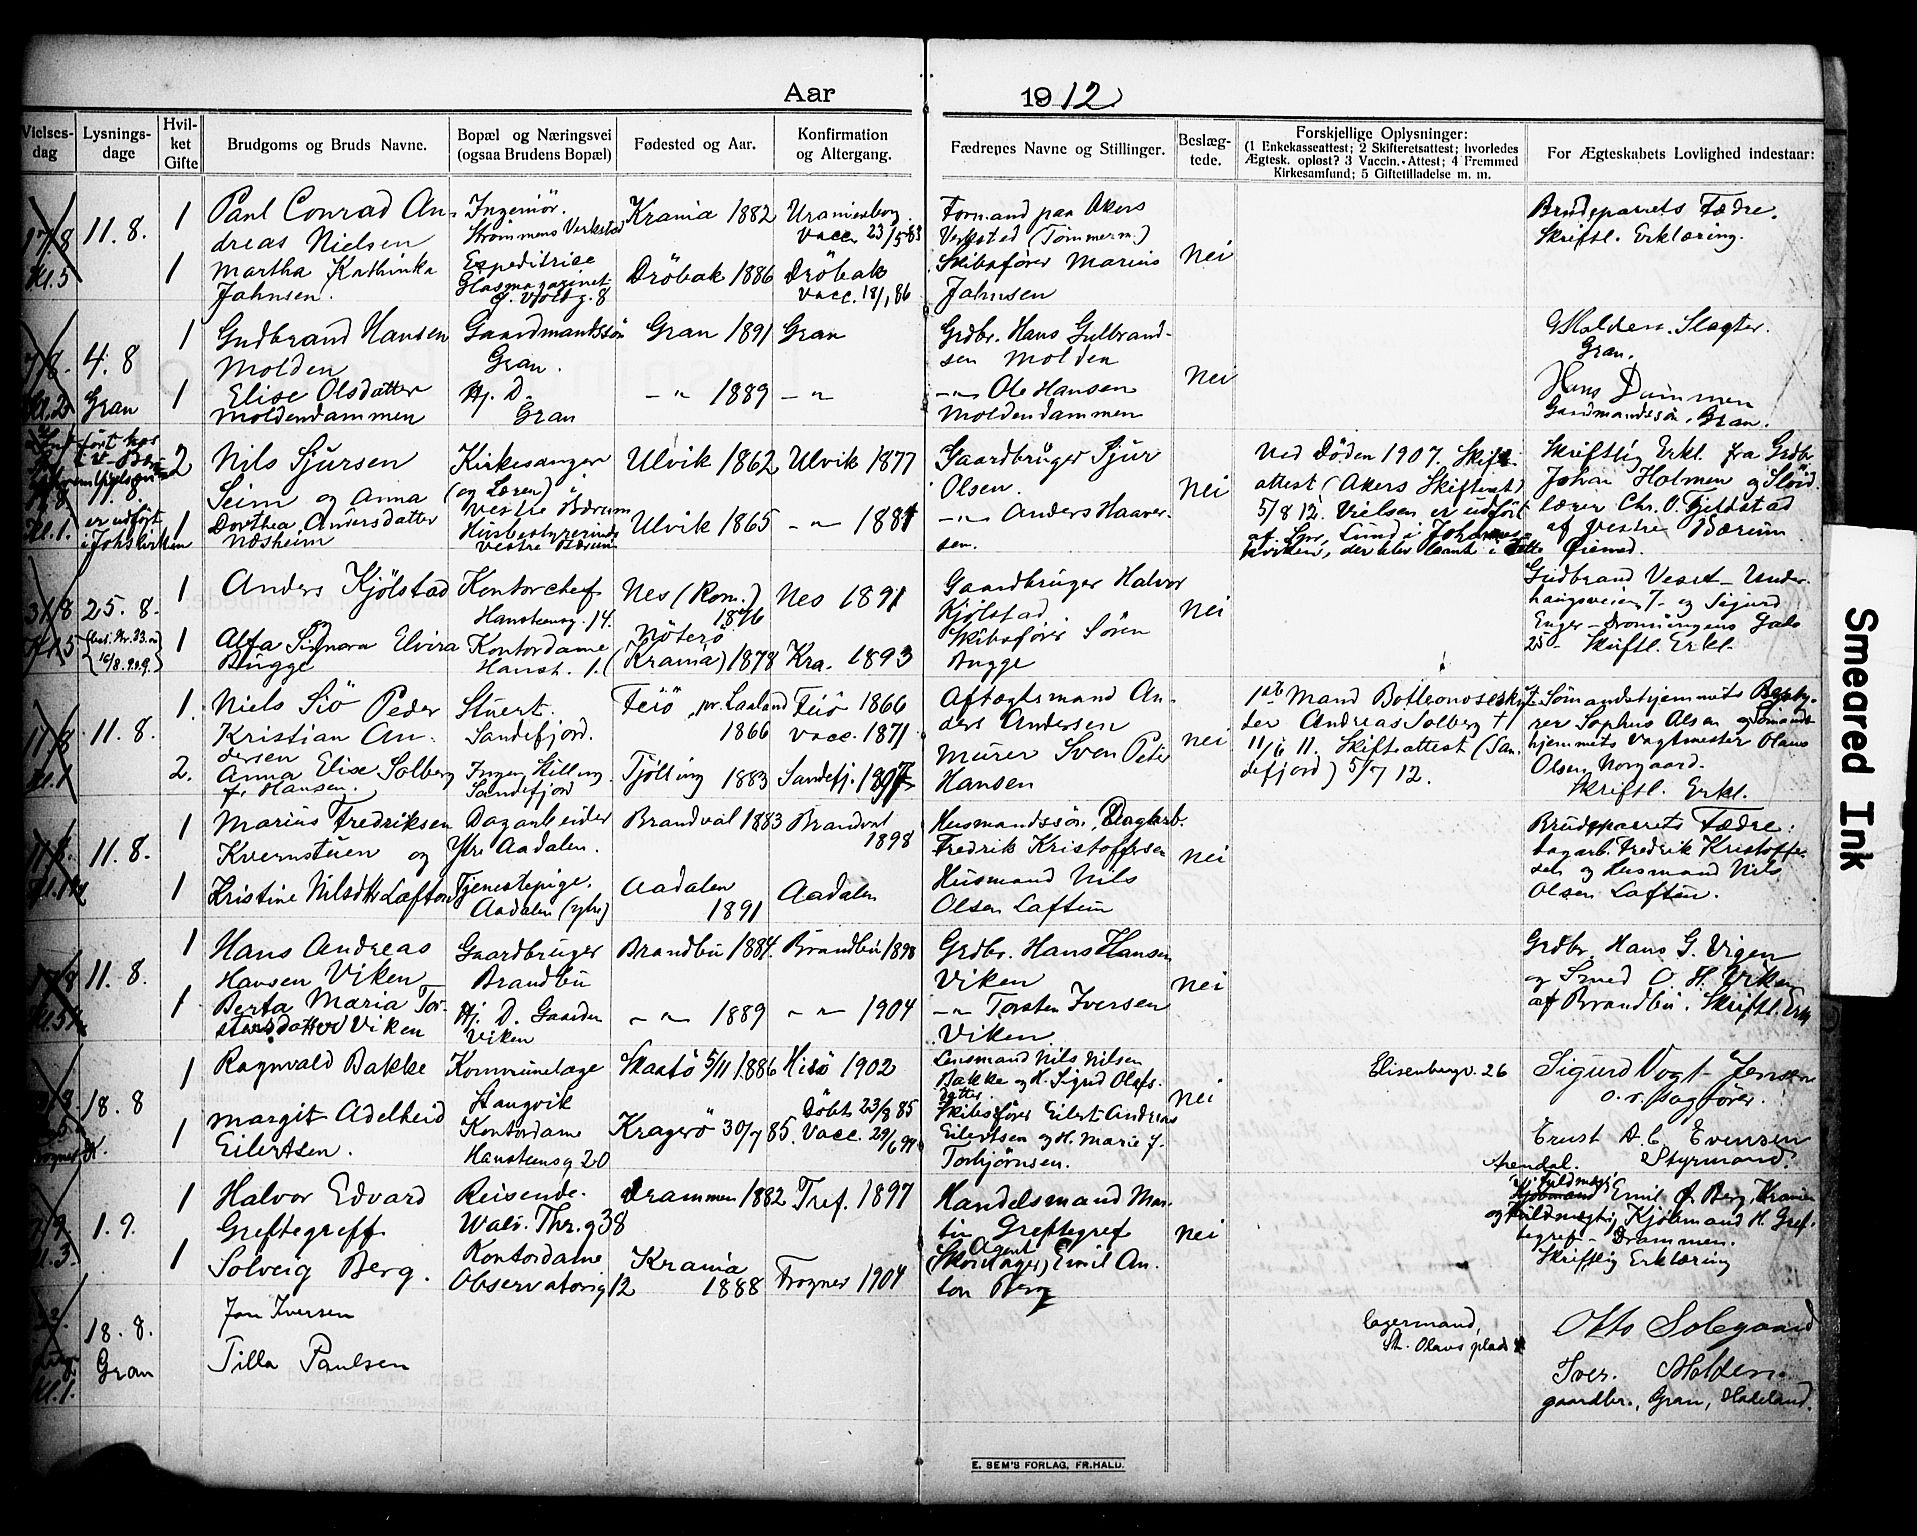 Aar 1912
Vielses-
dag
Lysnings-
dage
Hvil-
ket
Gifte
Brudgoms og Bruds Navne.
Bopæl og Næringsvei
(ogsaa Brudens Bopæl)
Fødested og Aar.
Konfirmation
og Altergang.
Fædrenes Navne og Stillinger.
Beslæg-
tede.
Forskjellige Oplysninger:
(1 Enkekasseattest; 2 Skifteretsattest; hvorledes
Ægtesk. opløst? 3 Vaccin.-Attest; 4 Fremmed
Kirkesamfund; 5 Giftetilladelse m. m.
For Ægteskabets Lovlighed indestaar:
17/8
Kl. 5
11. 8.
1
Paul Conrad An-
dreas Nielsen
Ingeniör.
Strømmens Verksted
Krania 1882
Uranienborg
Vacc. 23/5 83
Formand paa Akers
Verksted (Tömmerm.)
Nei
Brudeparrets Fædre.
Skriftl. Erklæring.
1
Martha Kathinka
Johnsen.
Expeditrice
Glasmagazinet
Dröbak 1886
Dröbak
Vacc. 18/1 86
Skibsförer Marius
Johnsen
4. 8
Gran
1
Gudbrand Hansen
Molden
Gaardmandssön
Gran.
Gran 1891
Gran
Grdbr. Hans Gulbrand-
sen Molden
Nei
G Molden. Slagter.
Gran.
1
Elise Olsdatter
Moldendammen
Hj. D.
Gran
— " 1889
— "
— " Ole Hansen
Moldendammen
Hans Dammen
Gaardmandssön, Gran.
11.8
er udført
i Johskirken
Kl. 1.
2
Nils Sjursen
Seim og Anna
Kirkesanger
(og Lærer) i
Vestre Bærum
Ulvik 1862
Ulvik 1877
Gaardbruger Sjur
Olsen.
Nei
Ved Döden 1907. Skift-
attest (Akers Skifteret)
5/8 12. Vielsen er udført
af Spr. Lund i Johannes-
kirken, der blev laant i
Skriftlig Erkl. fra Grdbr
Johan Holmen og Slöid
lærer Chr. O. Fjeldstad
af Vestre Bærum.
1
Dorthea Andersdatter
Næsheim
Husbestyrerinde
Vestre Bærum
Ulvik 1865
— " — 1881
— " — Anders Haaver-
sen.
31/8
25. 8.
1
Anders Kjölstad
Kontorchef
Hansteensg. 14.
Nes (Rom.)
1876
Nes 1891
Gaardbruger Halvor
Kjölstad
Nei
Gudbrand Veset – Under-
haugsveien 7 – og Sigurd
Enger – Dronningens Gade
25 – Skriftl. Erkl.
1
Alfa Signora Elvira
Bugge
Kontordame
Hanst. 1.
Nöterö
(Krania) 1878
Kra. 1893
Skibsförer Sören
Bugge
11. 8.
1.
Niels Siö Peder
Kristian An-
dersen
Stuert.
Sandefjord.
Feiö pr. Laaland
1866
Feiö 1866
Vacc. 1871
Aftægtsmand An-
ders Andersen
Nei
1ste Mand Bottlenoseskyt-
ter Andreas Solberg †
11/6 11. Skifteattest (San-
defjord) 5/7 12.
Sömandshjemmets Besty-
rer Sophus Olsen og Sömands-
hjemmets Vagtmester Olaus
Olsen Norgaard.
Skriftl. Erkl.
2.
Anna Elise Solberg
f. Hansen.
Ingen Stilling
Sandefjord
Tjölling 1883
Sandefj. 1897
Murer Sven Peter
Hansen
11. 8.
1
Marius Fredriksen
Kvernstuen og
Dagarbeider
Ytre Aadalen.
Brandval 1883
Brandval
1898
Husmandssön, Dagarb.
Fredrik Kristoffersen
Nei
Brudeparrets Fædre:
Dagarb. Fredrik Kristoffer-
sen og Husmand Nils
Olsen Laftun.
1
Kristine Nilsdtr Laftun
Tjenestepige.
Aadalen (ytre)
Aadalen
1891
Aadalen
Husmand Nils
Olsen Laftun
17/8
11. 8.
1
Hans Andreas
Hansen Viken
Gaardbruger
Brandbu
Brandbu 1884.
Brandbu 1898
Grdbr. Hans Hansen
Viken
Nei
Grdbr. Hans G. Vigen
og Smed O. H. Viken
af Brandbu. Skriftl. Erk
1
Berta Maria Tor-
stensdatter Viken
Hj. D. Gaarden
Viken
— " — 1889
— " — 1904
— " Torsten Iversen
Viken.
18. 8
1
Ragnvald Bakke
Kommunelæge
Stangvik
Skaatö 5/11 1886
Hisö 1902
Lensmand Nils Nilsen
Bakke og H. Sigrid Olafs-
datter
Nei
Elisenbergv. 26
Sigurd Vogt-Jensen
o. r. sagförer.
1
Margit Adelheid
Eilertsen.
Kontordame
Hansteensg 20
Kragerö 30/7 85.
Döbt 23/8 85
Vacc. 29/6 94
Skibsförer Eilert Andreas
Eilertsen og H. Marie J.
Torbjörnsen.
Ernst A. C. Evensen
Arendal. Styrmand.
Kl. 3.
1. 9.
1
Halvor Edvard
Greftegreff
Reisende.
Wald. Thr. g 38
Drammen 1882
Tref. 1897
Handelsmand Mar-
tin Greftegref
Nei
Fuldmægt
Emil Ø. Berg, Krania
og Kjöbmand H. Gref-
tegref – Drammen.
Skriftlig Erklæring
1
Solveig Berg.
Kontordame
Observatorieg 12
Krania
1888
Frogner 1904
Agent
(Skotöiager) Emil An-
ton Berg
18. 8.
Gran
Kl. 1.
Jon Iversen
Tilla Paulsen
Lagermand,
St. Olavs plads 4
Otto Solegaard
Iver Molden.
gaardbr., Gran, Hadeland.
E. SEM'S FORLAG, FR.HALD.
Smeared Ink